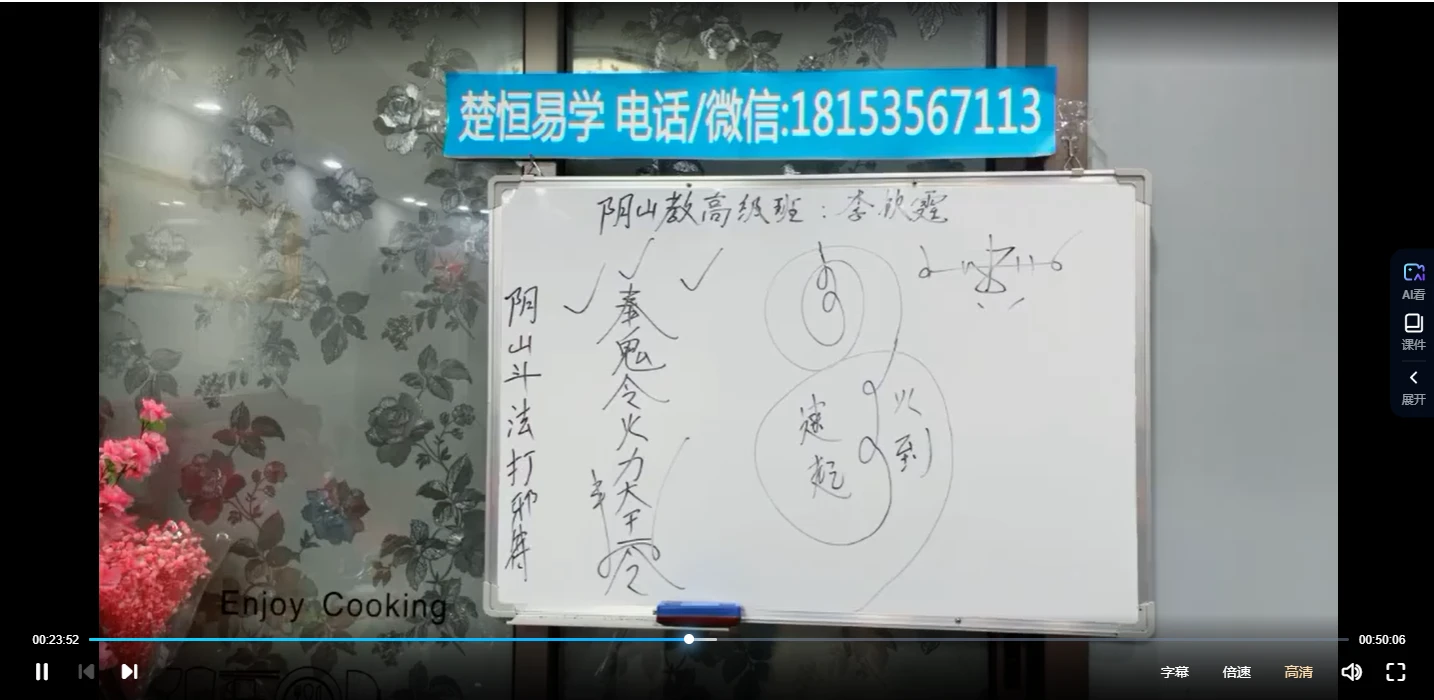 楚恒易学 电话/微信:18153567113
阴山教高级班：李欣霆
阴山斗法打邪符
奉
鬼
令
火
力
大
王
令
速
起
火
到
Enjoy Cooking
AI看
课件
展开
00:23:52
00:50:06
字幕
倍速
高清